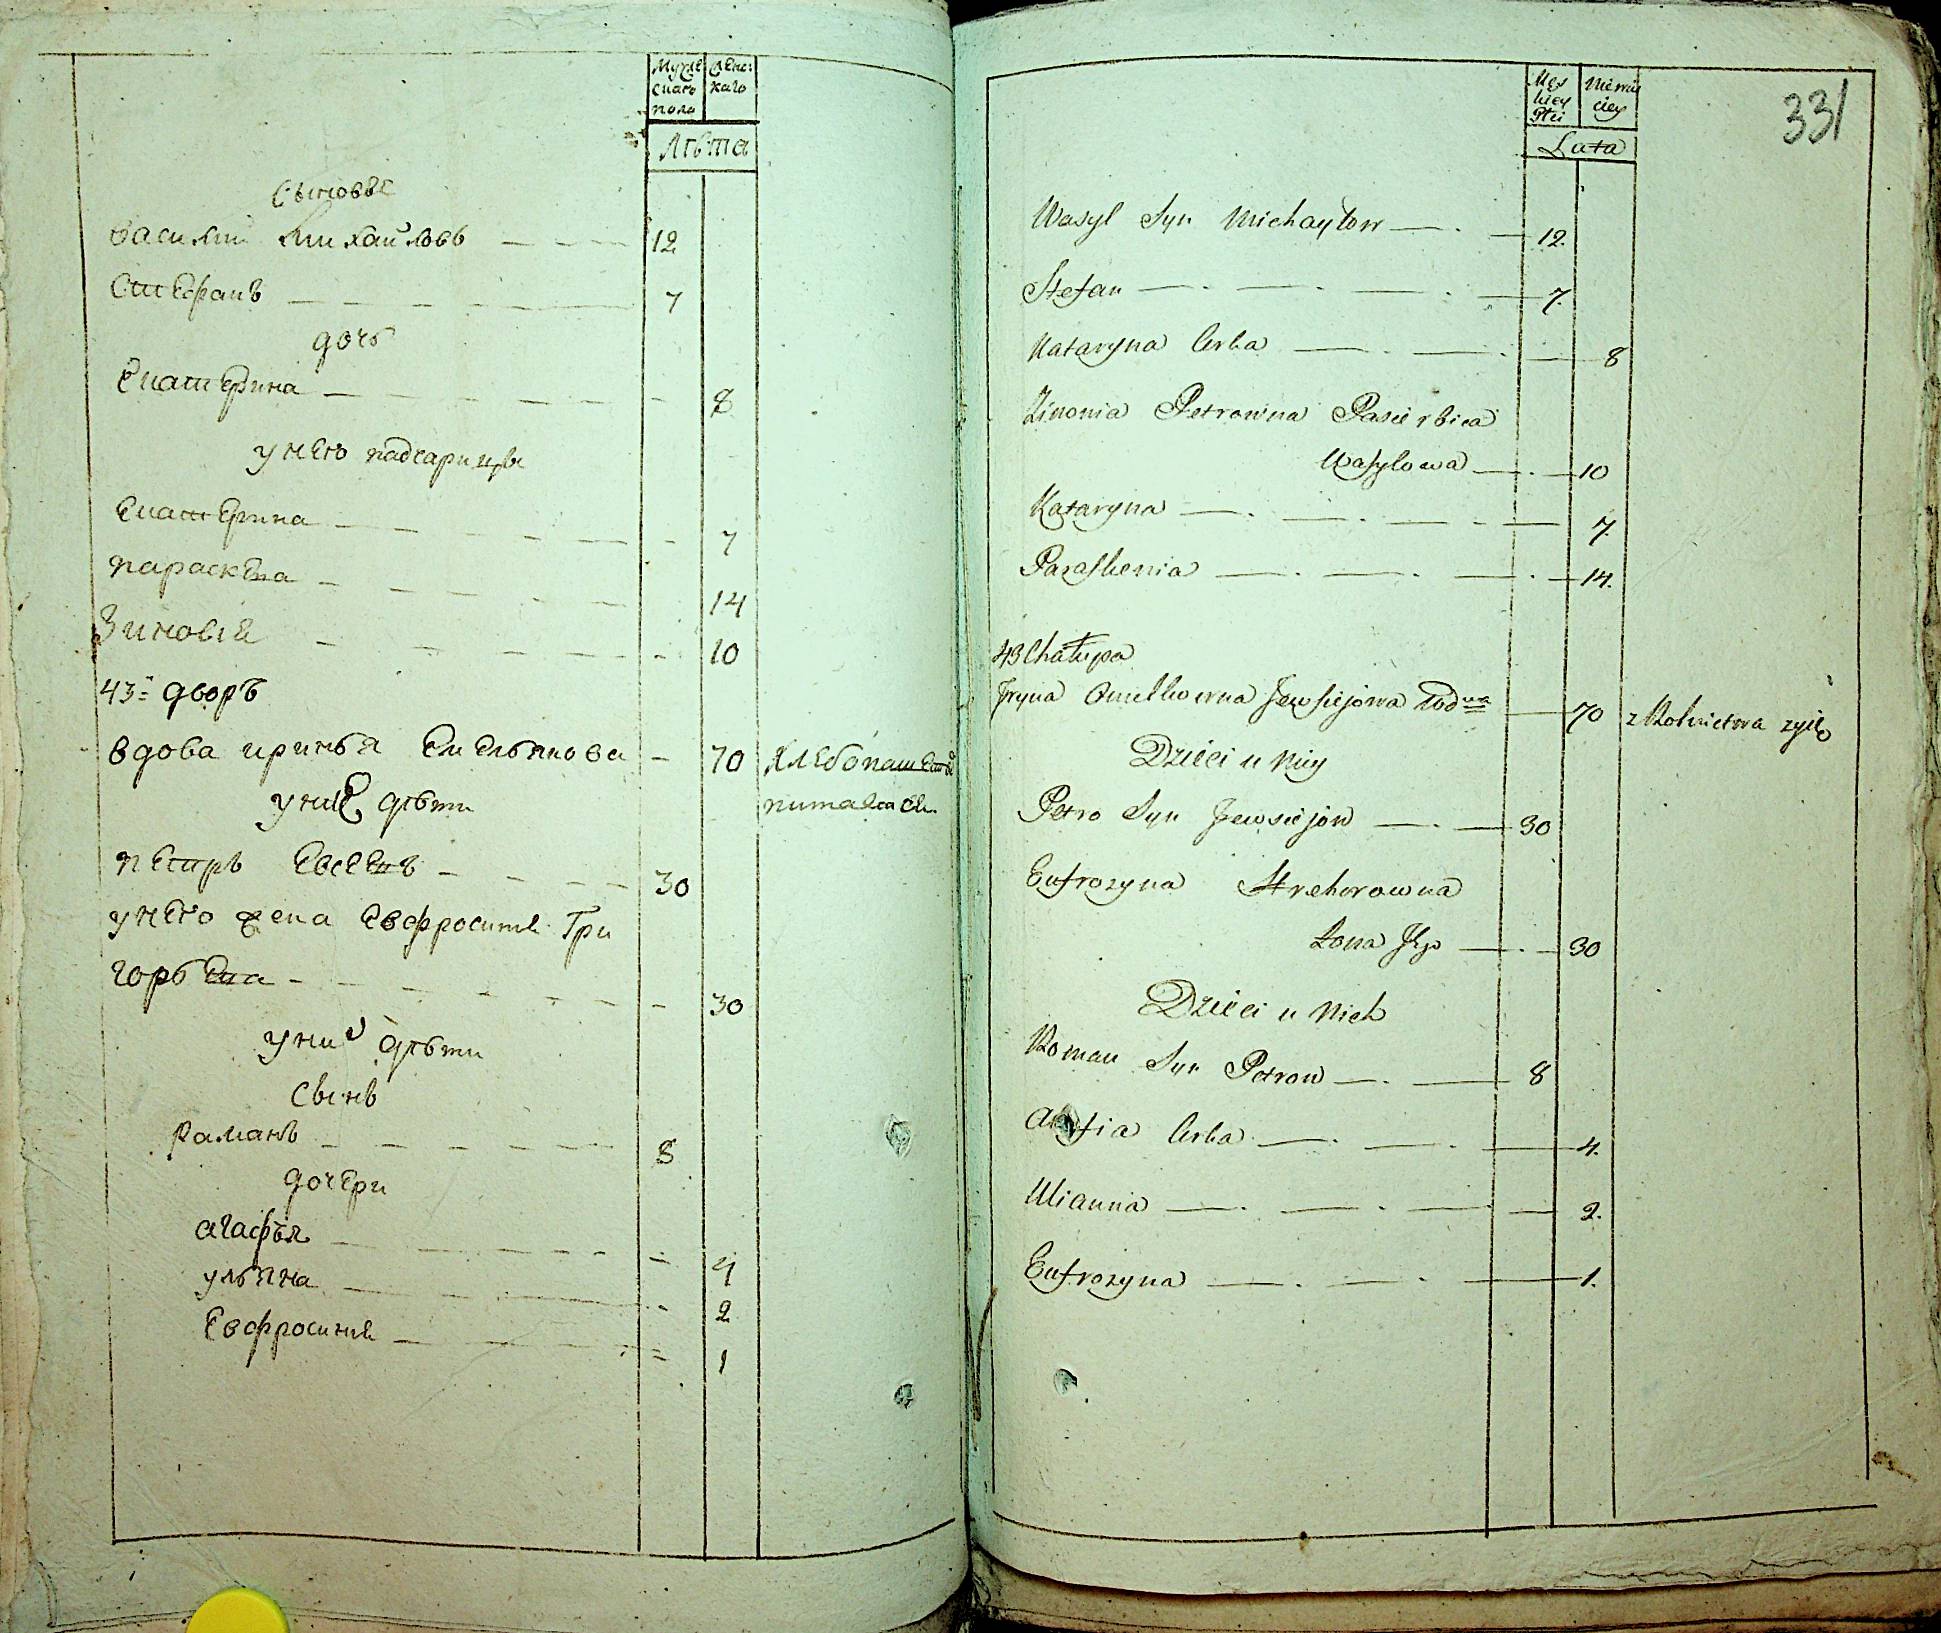 Мужес
скаго
пола
Женс:
каго
Лѣта
Сыновье
Василий Михайловъ 12
Стефанъ 7
дочь
Екатерина 8
у него падчарицы
Екатерина 7
Параскева 14
Зиновія 10
43й дворъ
вдова иринья Емельянова 70 хлебопашест
питается
у ние дѣти
петръ Евсеевъ 30
у него жена Евфросинія Гри
горьева 30
у них дѣти
Сынъ
Раманъ 8
дочери
агафья 4
ульяна 2
Евфросиния 1
331
Męz
kiey
Płci
Niewie
ciey
Lata
Wasyl Syn Michayłow 12.
Stefan 7.
Kataryna Corka 8
Zinonia Petrowna Pasierbica
Wasylowa 10
Kataryna 7.
Paraskewia 14.
43 Chałupa
Jryna Omelkowna Jewsiejowa Wdwa 70 z Rolnictwa zyie
Dzieci u Niey
Petro Syn Jewsiejow 30
Eufrozyna Hrehorowna
Zona Jego 30
Dzieci u Nich
Roman Syn Petrow 8
Corka 4.
Ulianna 2.
Eufrozyna 1.